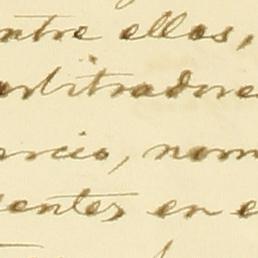 entre ellos,
arbitradore
ercio, nom
entes en e